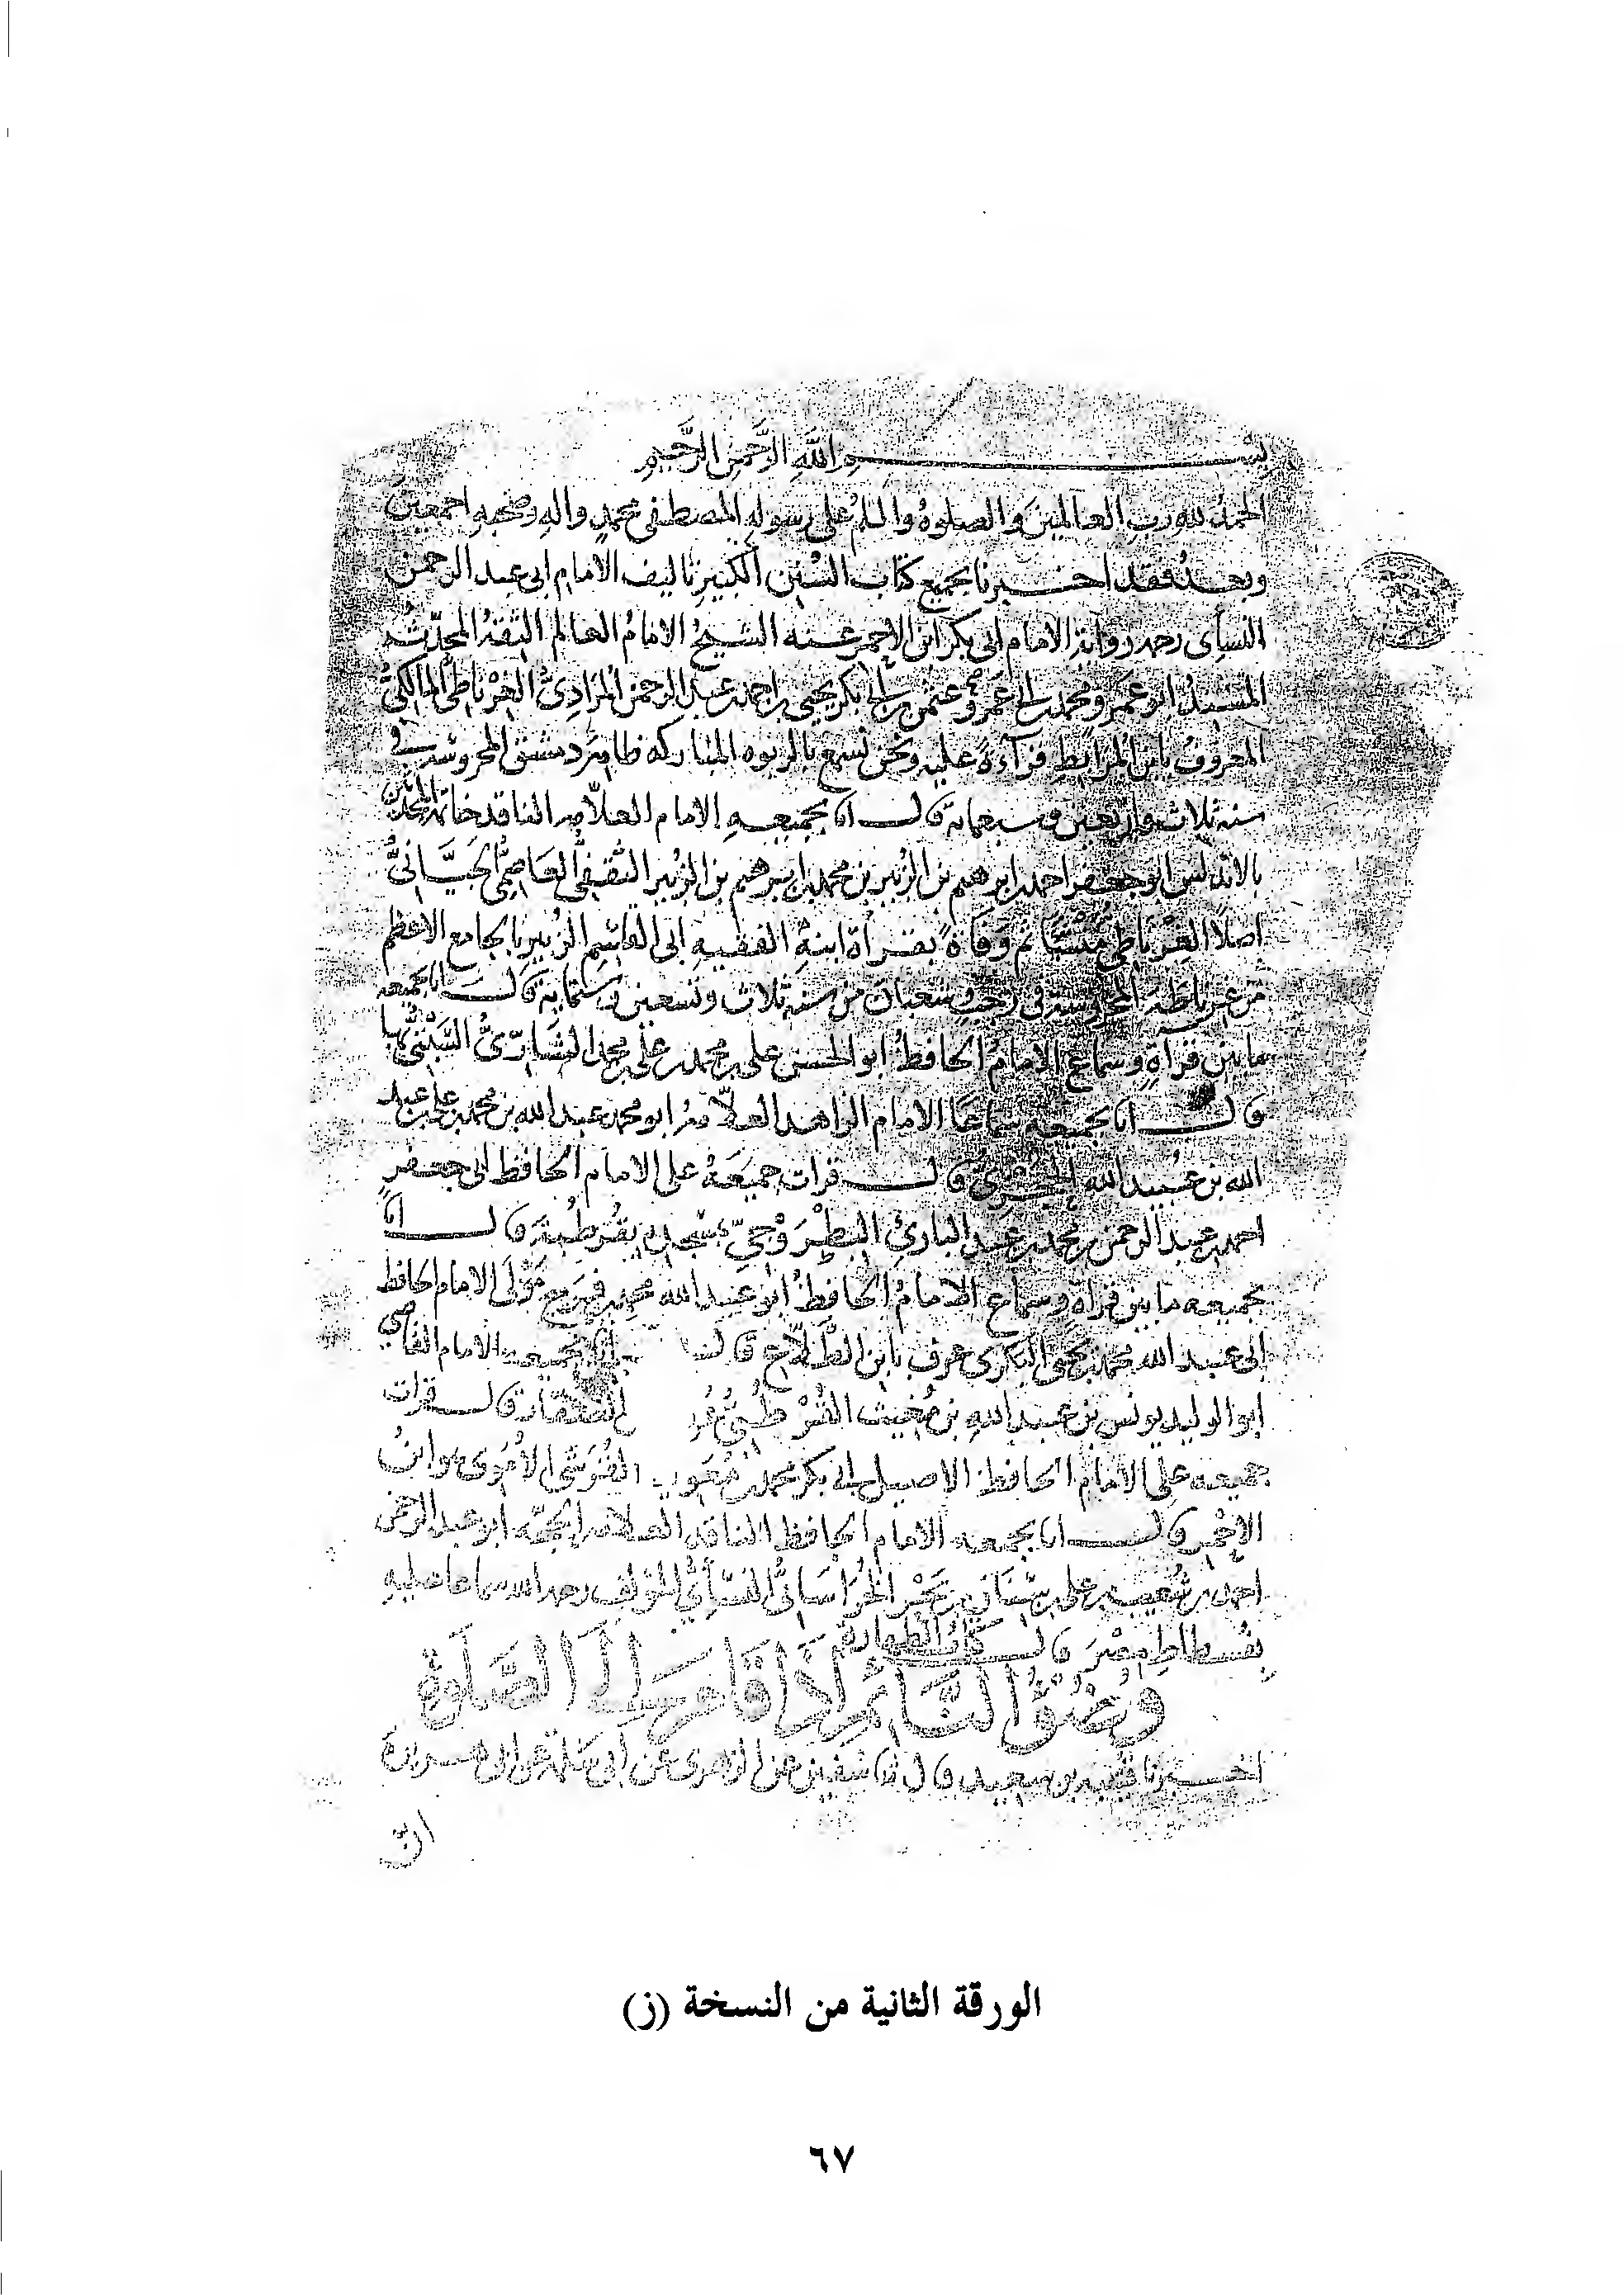 بسم الله الرحمن الرحيم
الحمد لله رب العالمين والصلوة والسلم على رسوله المصطفى محمد واله وصحبه اجمعين
وبعد فقد اخبرنا بجميع كتاب السنن الكبير تاليف الامام ابى عبد الرحمن
النسأى رحمه رواية الامام ابى بكر ابن الاحمر عنه الشيخ الامام العالم الثقة المحدث
المسند ابو عمرو محمد بن ابى عمرو عثمن بن ابى بكر يحيى بن احمد بن عبد الرحمن المرادى الغرناطى المالكى
المعروف بابن المرابط قرآءة عليه ونحن نسمع بالربوه المباركه ظاهر دمشق المحروسه في
سنه ثلاث واربعين وسبعمايه قال انا بجميعه الامام العلامه الناقد خاتمة المحدثين
بالاندلس ابو جعفر احمد بن ابرهيم بن الزبير بن محمد بن ابرهيم بن الزبير الثقفى العاصمى الجيانى
اصلا الغرناطى منشأ ثم وفاة بقرأة ابنه الفقيه ابى القاسم الزبير بالجامع الاعظم
من غرناطة المحروسة فى رجب وشعبان من سنه ثلاث وتسعين وستمايه قال انا بجميعه
ما بين قرأة وسماع الامام الحافظ ابو الحسن على بن محمد بن على بن محمد الشارى السبتى بها
قال انا بجميعه سماعا الامام الزاهد العلامه ابو محمد عبد الله بن محمد بن على بن عبد
الله بن عبيد الله الحجرى قال قرات جميعه على الامام الحافظ ابى جعفر
احمد بن عبد الرحمن بن محمد بن عبد البارئ البطروجى بمسجده بقرطبة قال انا
بجميعه ما بين قرأه وسماع الامام الحافظ ابو عبد الله محمد بن فرج مولى الامام الحافظ
ابى عبد الله محمد بن يحيى البكرى عرف بابن الطلاع قال انا بجميعه الامام القاضى
ابو الوليد يونس بن عبد الله بن مغيث القرطبى الصفار قال قرات
جميعه على الامام الحافظ الاصيل ابى بكر محمد بن معوية القرشى الاموى هو ابن
الاحمر قال انا بجميعه الامام الحافظ الناقد العلامه الحجه ابو عبد الرحمن
احمد بن شعيب بن على بن سنان بن بحر الخراسانى النسأى المولف رحمه الله سماعا عليه
بفسطاط مصر قال كتاب الطهارة
وضوء النائم اذا قام الى الصلوة
اخبرنا قتيبه بن سعيد قال ثنا سفين عن الزهرى عن ابى سلمة عن ابى هريرة
ان
الورقة الثانية من النسخة (ز)
٦٧